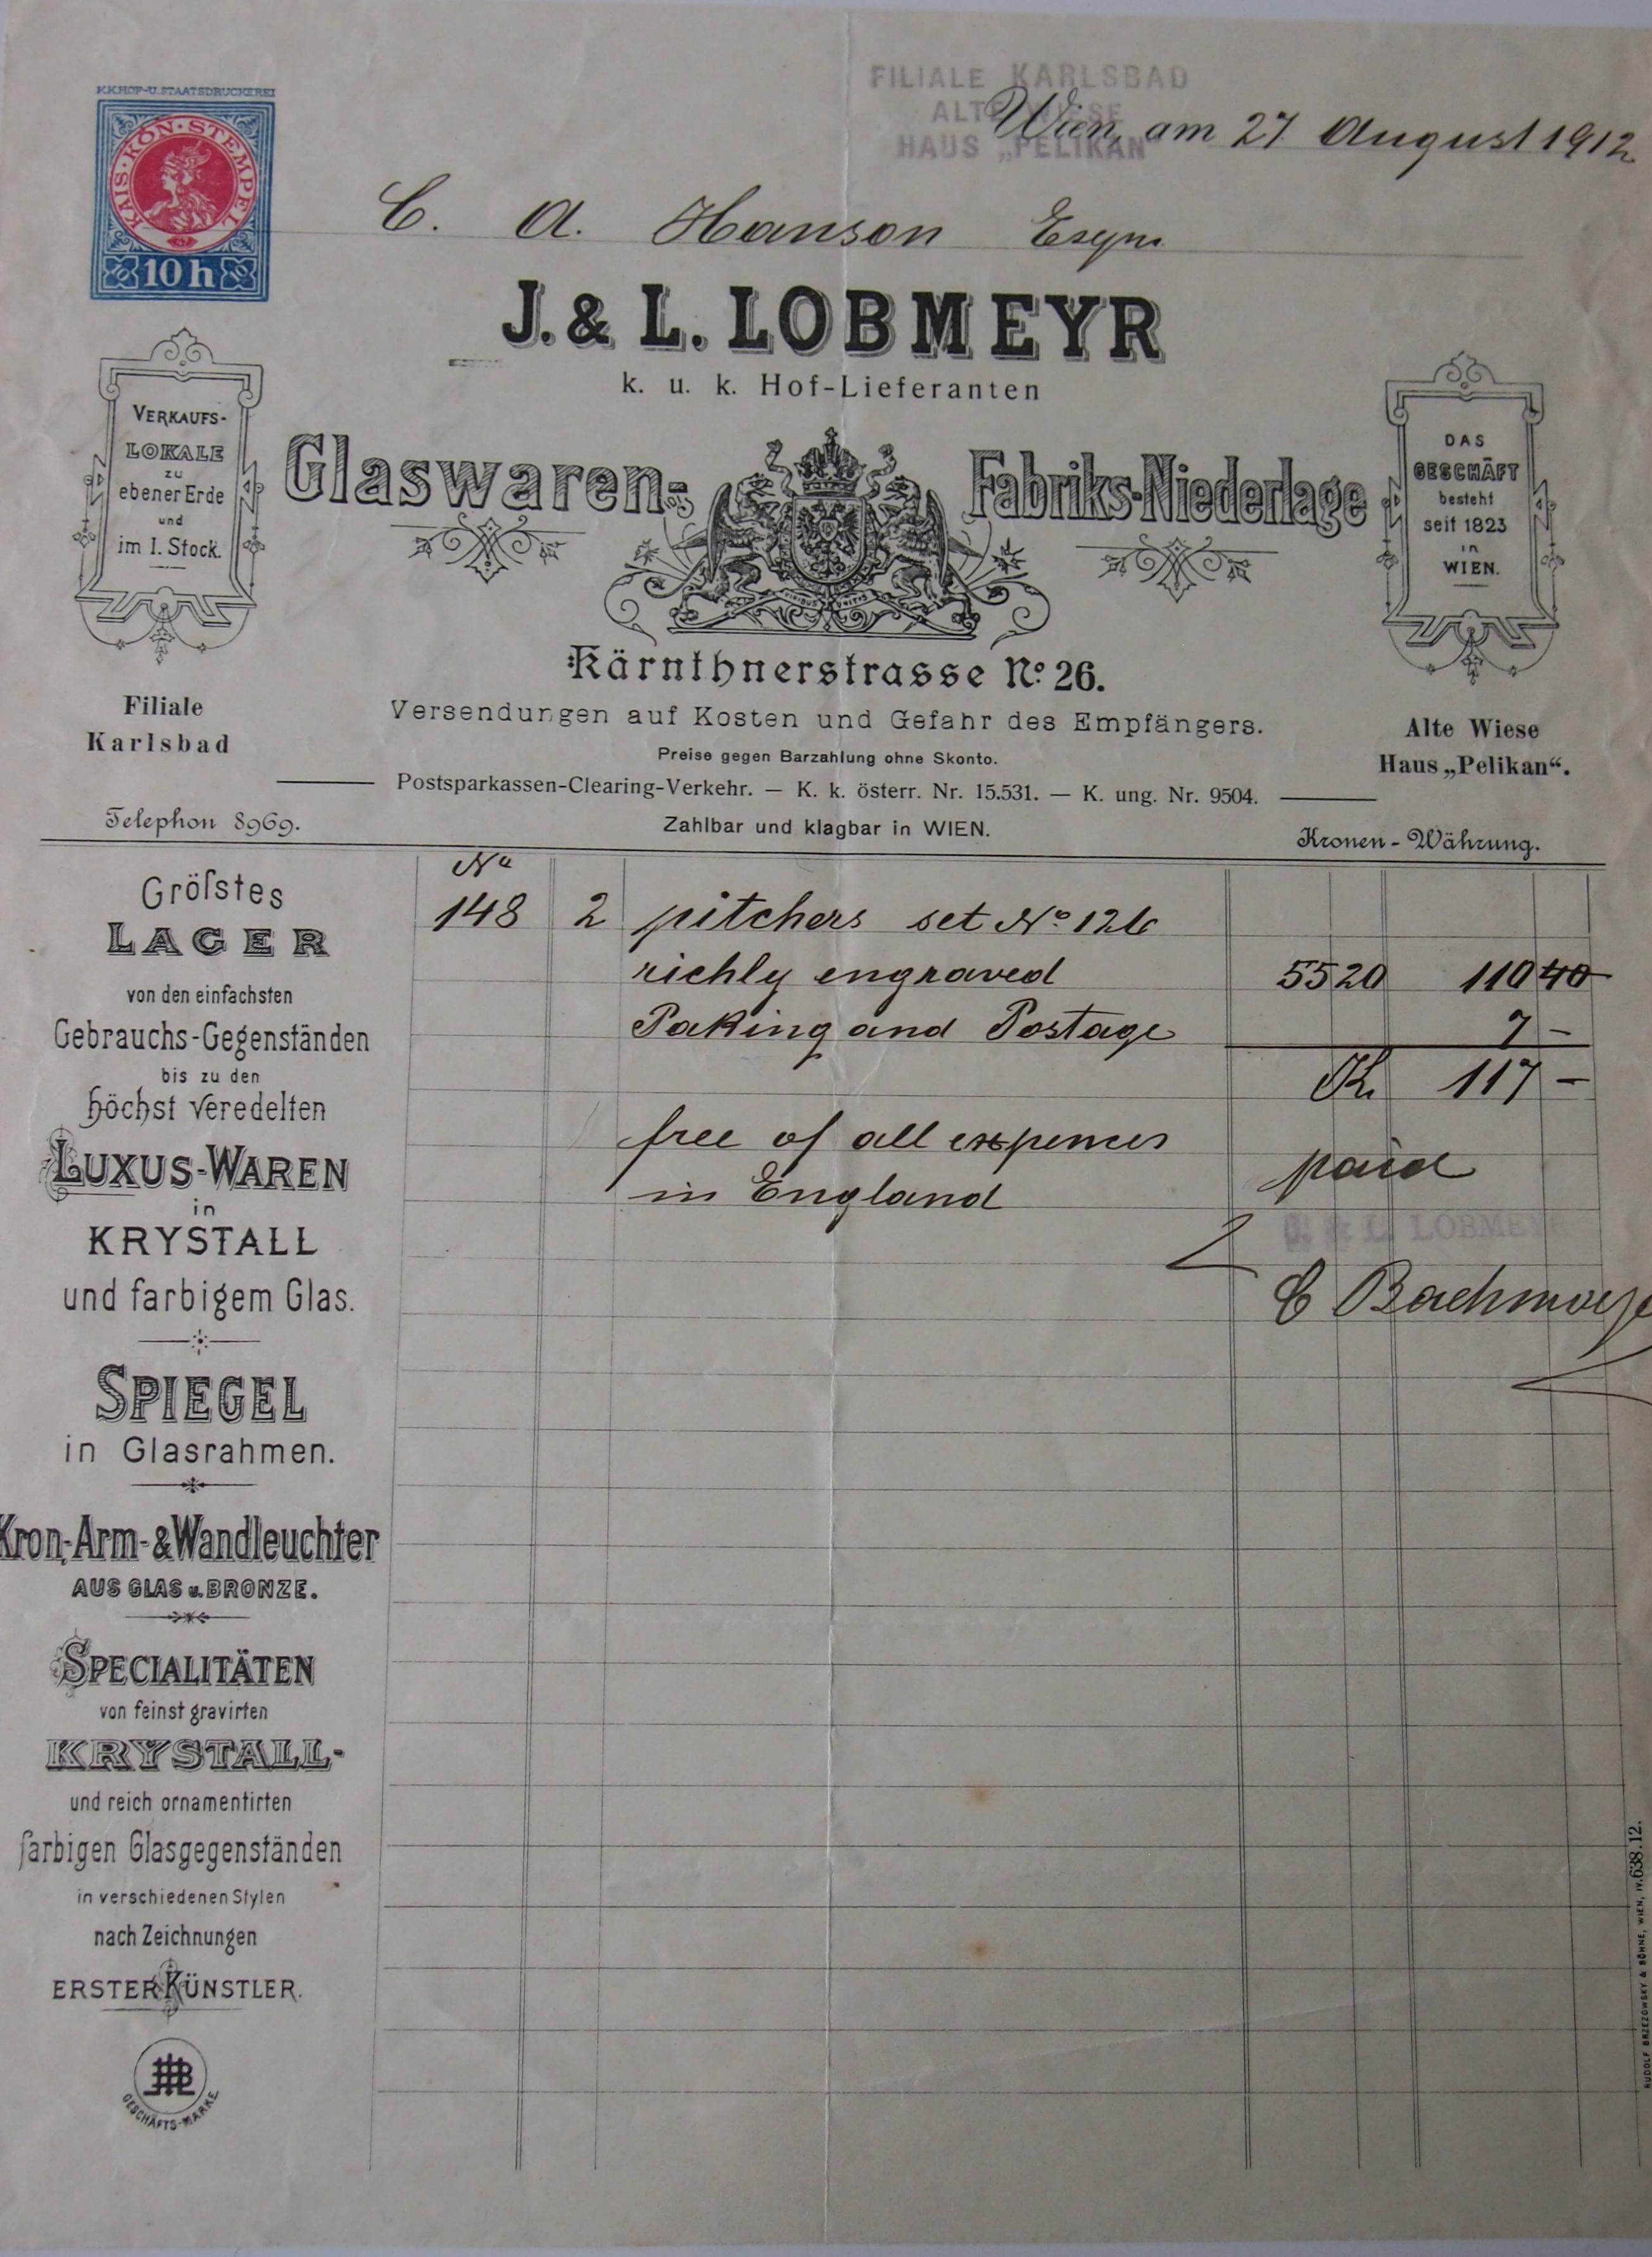 K.K.HOF-U.STAATSDRUCKEREI
KAIS·KÖN·STEMPEL
10 h
FILIALE KARLSBAD
ALTE WIESE
HAUS „PELIKAN"
Wien, am 27 August 1912
C. A. Hanson Esqre
J. & L. LOBMEYR
k. u. k. Hof-Lieferanten
VERKAUFS-
LOKALE
zu
ebener Erde
und
im I. Stock.
Glaswaren- Fabriks-Niederlage
VIRIBUS UNITIS
DAS
GESCHÄFT
besteht
seit 1823
in
WIEN.
Kärnthnerstrasse No 26.
Filiale
Karlsbad
Versendungen auf Kosten und Gefahr des Empfängers.
Preise gegen Barzahlung ohne Skonto.
Postsparkassen-Clearing-Verkehr. — K. k. österr. Nr. 15.531. — K. ung. Nr. 9504.
Alte Wiese
Haus „Pelikan“.
Telephon 8969.
Zahlbar und klagbar in WIEN.
Kronen-Währung.
No
148 2 pitchers set No 126
richly engraved 55 20 110 40
Paking and Postage 7 —
Kr 117 —
free of all expences paid
in England
J. & L. LOBMEYR
C Bachmayr
Gröſstes
LAGER
von den einfachsten
Gebrauchs-Gegenständen
bis zu den
höchst veredelten
LUXUS-WAREN
in
KRYSTALL
und farbigem Glas.
SPIEGEL
in Glasrahmen.
Kron,-Arm-&Wandleuchter
AUS GLAS u. BRONZE.
SPECIALITÄTEN
von feinst gravirten
KRYSTALL-
und reich ornamentirten
farbigen Glasgegenständen
in verschiedenen Stylen
nach Zeichnungen
ERSTER KÜNSTLER.
GESCHÄFTS-MARKE
RUDOLF BRZEZOWSKY & SÖHNE, WIEN, IV. 638.12.